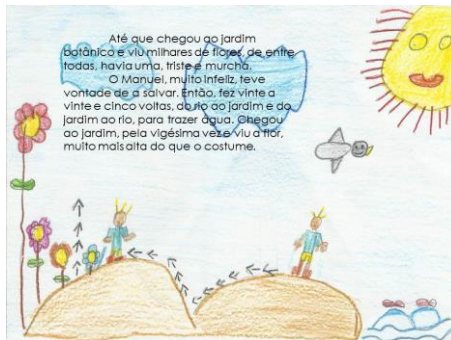 Até que chegou ao jardim
botânico e viu milhares de flores, de entre
todas, havia uma, triste e murcha.
O Manuel, muito infeliz, teve
vontade de a salvar. Então, fez vinte a
vinte e cinco voltas, do rio ao jardim e do
jardim ao rio, para trazer água. Chegou
ao jardim, pela vigésima vez e viu a flor,
muito mais alta do que o costume.